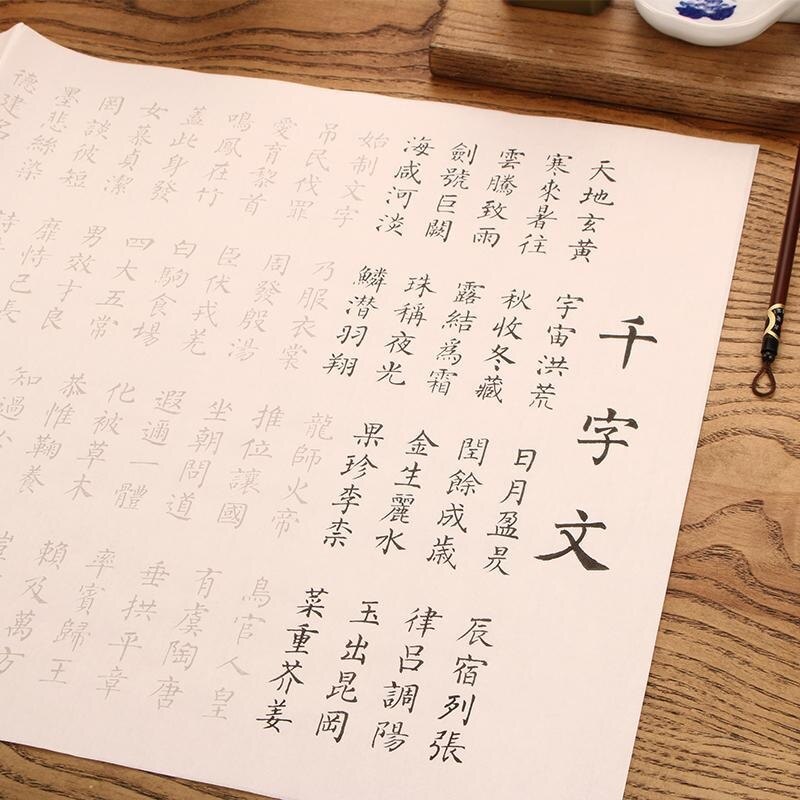 千字文
天地玄黃 宇宙洪荒 日月盈昃 辰宿列張
寒來暑往 秋收冬藏 閏餘成歲 律呂調陽
雲騰致雨 露結爲霜 金生麗水 玉出昆岡
劍號巨闕 珠稱夜光 果珍李柰 菜重芥姜
海咸河淡 鱗潜羽翔 龍師火帝 鳥官人皇
始制文字 乃服衣裳 推位讓國 有虞陶唐
吊民伐罪 周發殷湯 坐朝問道 垂拱平章
愛育黎首 臣伏戎羌 遐邇一體 率賓歸王
鳴鳳在竹 白駒食場 化被草木 賴及萬方
蓋此身發 四大五常 恭惟鞠養
女慕貞潔 男效才良 知過
罔談彼短 靡恃己長
墨悲絲染
德建名